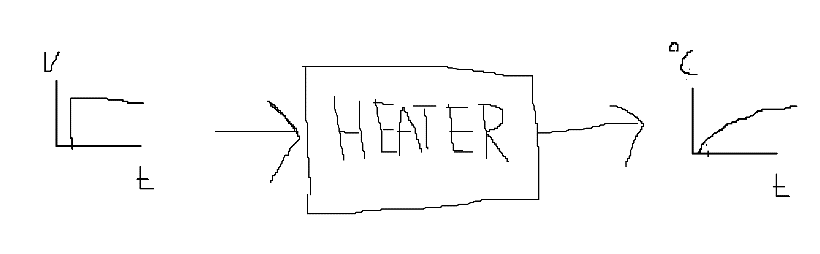 V
t
HEATER
°C
t